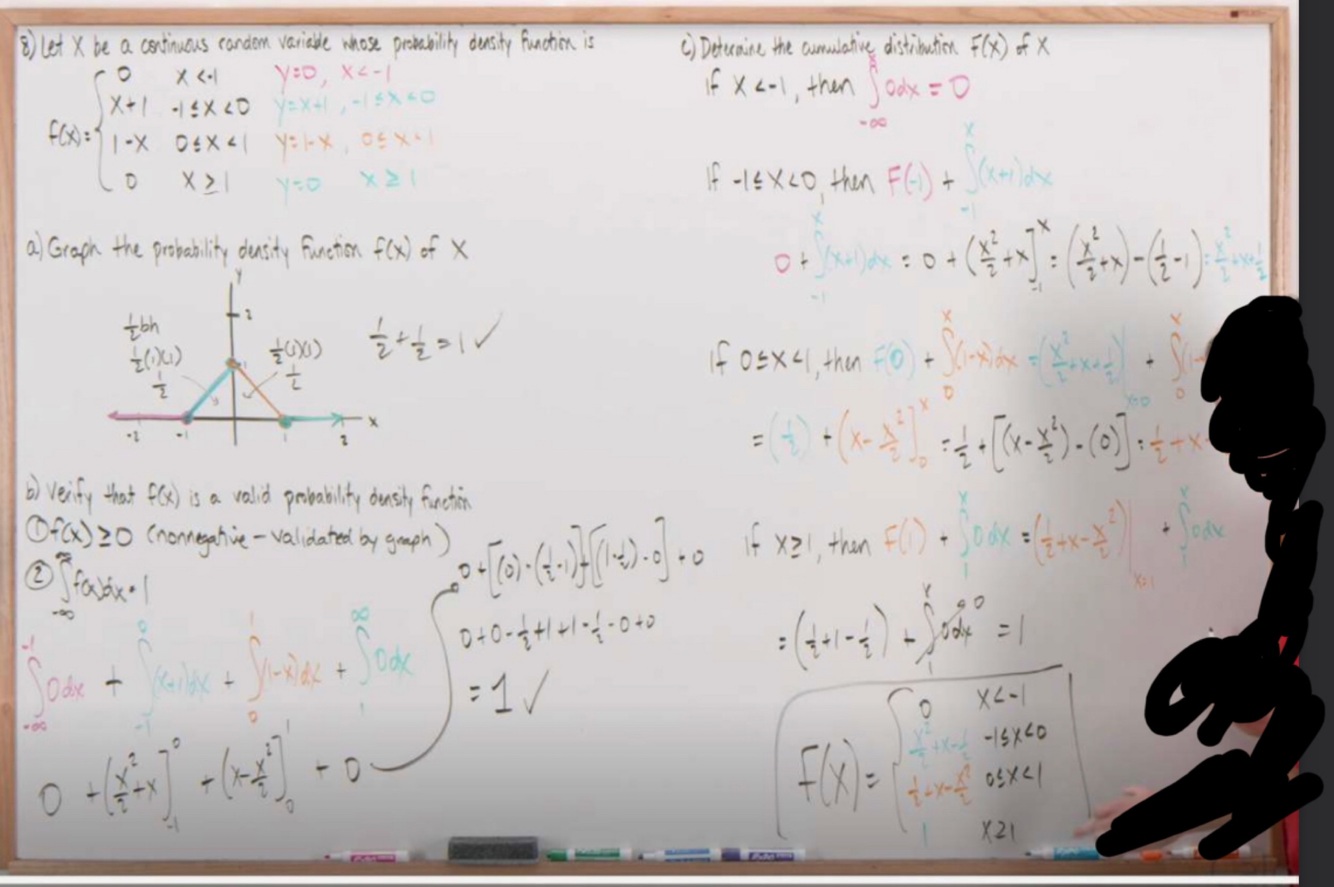 8) Let X be a continuous random variable whose probability density function is
f(x) = { 0 x < -1 y=0, x < -1
x+1 -1 ≤ x < 0 y=x+1, -1 ≤ x < 0
1-x 0 ≤ x < 1 y=1-x, 0 ≤ x < 1
0 x ≥ 1 y=0 x ≥ 1
a) Graph the probability density function f(x) of X
y
2
1/2 bh
1/2 (1)(1)
1/2
1
1/2 (1)(1)
1/2
1/2 + 1/2 = 1 ✓
-2 -1 1 2 x
b) Verify that f(x) is a valid probability density function
① f(x) ≥ 0 (nonnegative - validated by graph)
② ∫_{-∞}^{∞} f(x)dx = 1
∫_{-∞}^{-1} 0dx + ∫_{-1}^{0} (x+1)dx + ∫_{0}^{1} (1-x)dx + ∫_{1}^{∞} 0dx
0 + (x²/2 + x)]_{-1}^{0} + (x - x²/2)]_{0}^{1} + 0
0 + [(0) - (1/2 - 1)] + [(1 - 1/2) - 0] + 0
0 + 0 - 1/2 + 1 + 1 - 1/2 - 0 + 0
= 1 ✓
c) Determine the cumulative distribution F(x) of X
if x < -1, then ∫_{-∞}^{x} 0dx = 0
If -1 ≤ x < 0, then F(-1) + ∫_{-1}^{x} (x+1)dx
0 + ∫_{-1}^{x} (x+1)dx = 0 + (x²/2 + x)]_{-1}^{x} = (x²/2 + x) - (1/2 - 1) = x²/2 + x + 1/2
if 0 ≤ x < 1, then F(0) + ∫_{0}^{x} (1-x)dx = (x²/2 + x + 1/2)|_{x=0} + ∫_{0}^{x} (1-
= (1/2) + (x - x²/2)]_{0}^{x} = 1/2 + [(x - x²/2) - (0)] = 1/2 + x -
if x ≥ 1, then F(1) + ∫_{1}^{x} 0dx = (1/2 + x - x²/2)|_{x=1} + ∫_{1}^{x} 0dx
= (1/2 + 1 - 1/2) + ∫_{1}^{x} 0dx 0 = 1
F(x) = { 0 x < -1
x²/2 + x - 1/2 -1 ≤ x < 0
1/2 + x - x²/2 0 ≤ x < 1
1 x ≥ 1